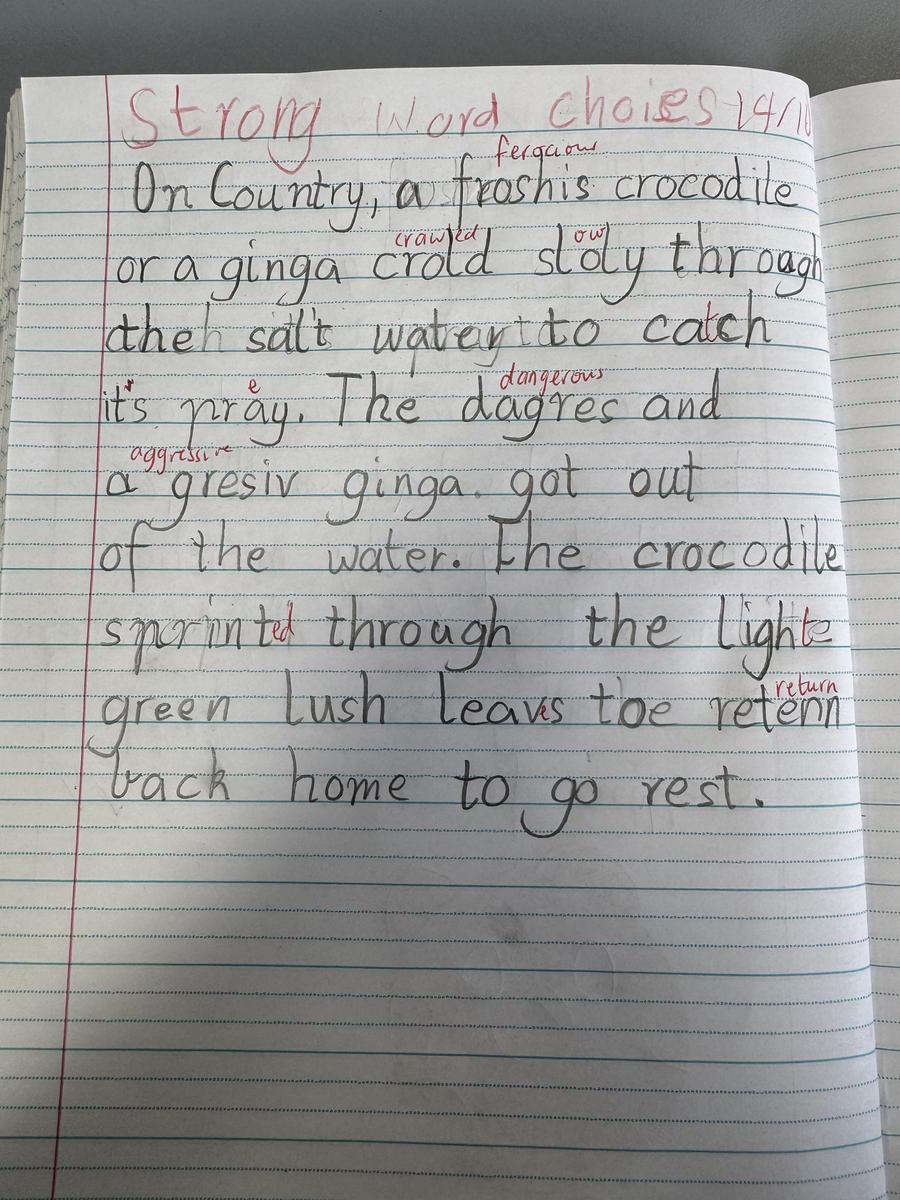 Strong Word Choies 14/10
fergaious
On Country, a froshis crocodile
crawled ow
or a ginga crold sloly through
the salt water to catch
e dangerous
it's pray. The dagres and
aggressive
a gresiv ginga. got out
of the water. The crocodile
sprinted through the light
return
green lush leaves to retenn
back home to go rest.